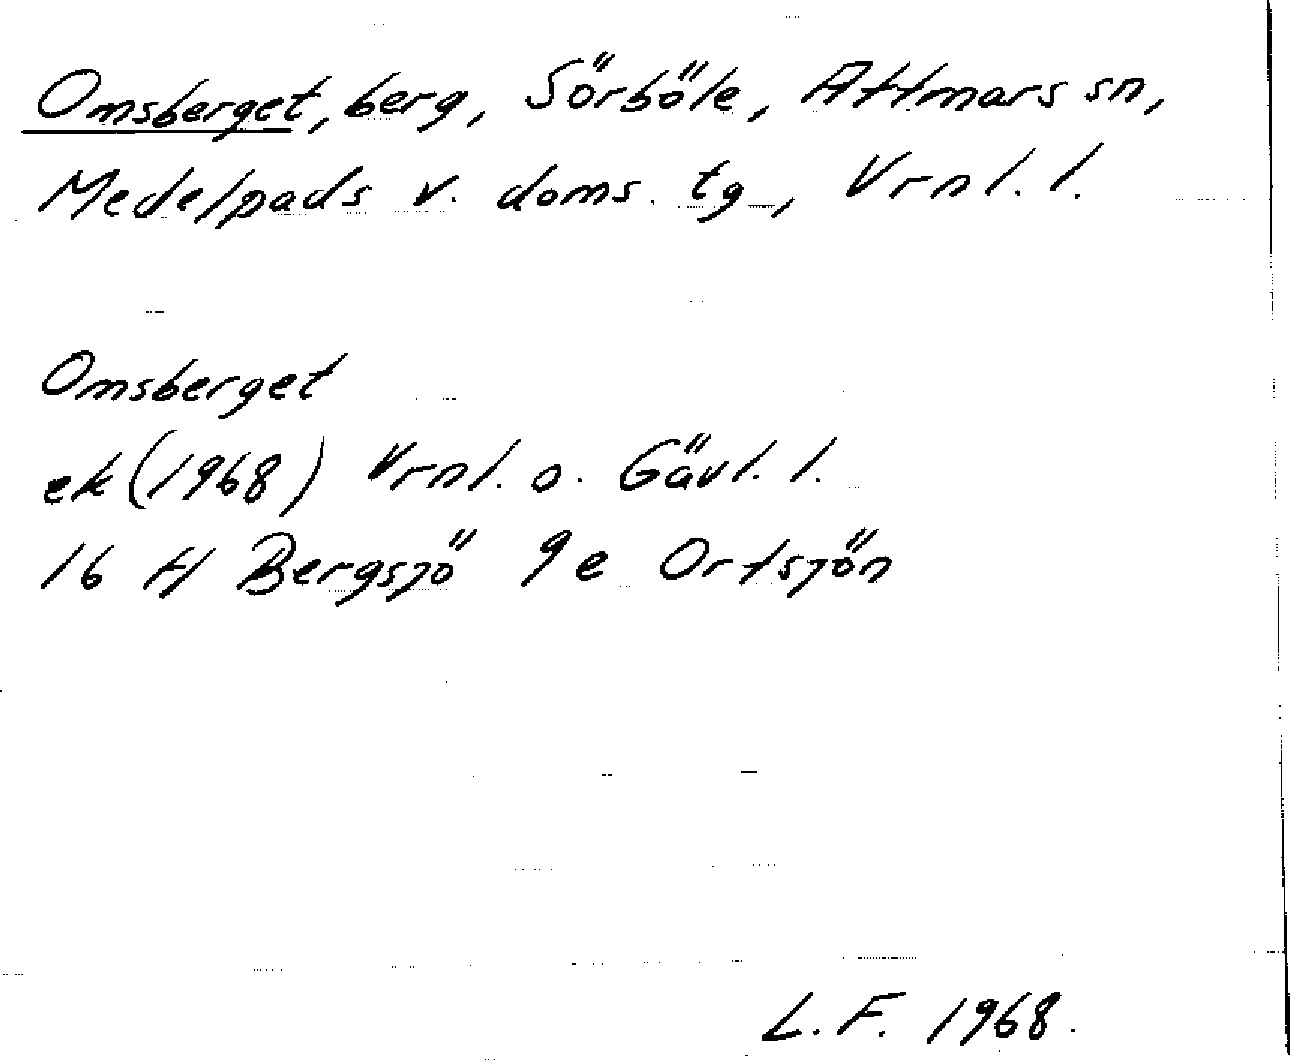 Omsberget, berg, Sörböle, Attmars sn,
Medelpads v. doms. tg, Vrnl. l.
Omsberget
ek (1968) Vrnl. o. Gävl. l.
16 H Bergsjö 9e Ortsjön
L. F. 1968.